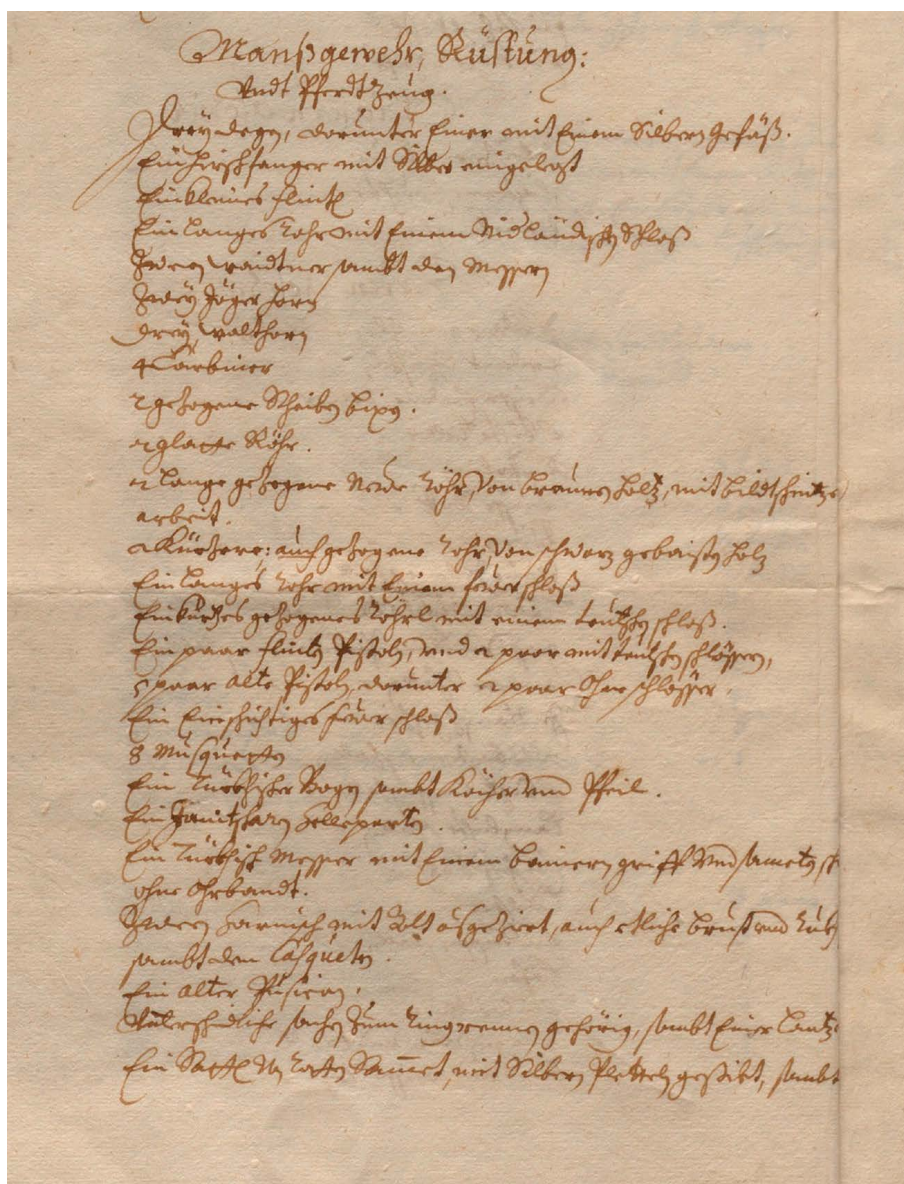 Manßgewehr, Rüstung:
Vndt Pferdt Zeug.
Drey degen, darunter Einer mit Einem Silbern Gefäß.
Ein Hirschfanger mit Silber eingelegt
Ein kleines flintl
Ein langes Rohr mit Einem Nidländischen Schloß
Zween waidtner sambt den Messern
Zwey Jäger horn
drey walthorn
4 Carbiner
2 gezogene Scheiben bixen.
2 glatte Röhr.
2 lange gezogene Neue Röhr, Von braunen holtz, mit bildtschnitzer
arbeit.
2 Kürtzere: auch gezogene Rohr Von schwarz gebaisten holz
Ein langes Rohr mit Einem feuer schloß
Ein kurtzes gezogenes Röhrl mit einem teutschen schloß.
Ein paar flinten Pistoln, vnd 2 paar mit teutschen schlössern,
5 paar alte Pistoln, darunter 2 paar Ohne schlösser.
Ein Einschichtiges feuer schloß
8 Musquetten
Ein Türkhischer Bogen sambt Köcher vnd Pfeil.
Ein Janitscharn helleparten.
Ein Türkhisch Messer mit Einem beinern griff Vnd sameten
ohne Ohrbandt.
Zween Harnisch mit Golt ausgeziert, auch etliche brust vnd Rukh
sambt den Casqueten.
Ein alter Pusican.
Vnterschidliche sachen Zum Ringrennen gehörig, sambt Einer Lantzen
Ein Sattl Von Roten Sammet, mit Silbern Pletteln gestikt, sambt